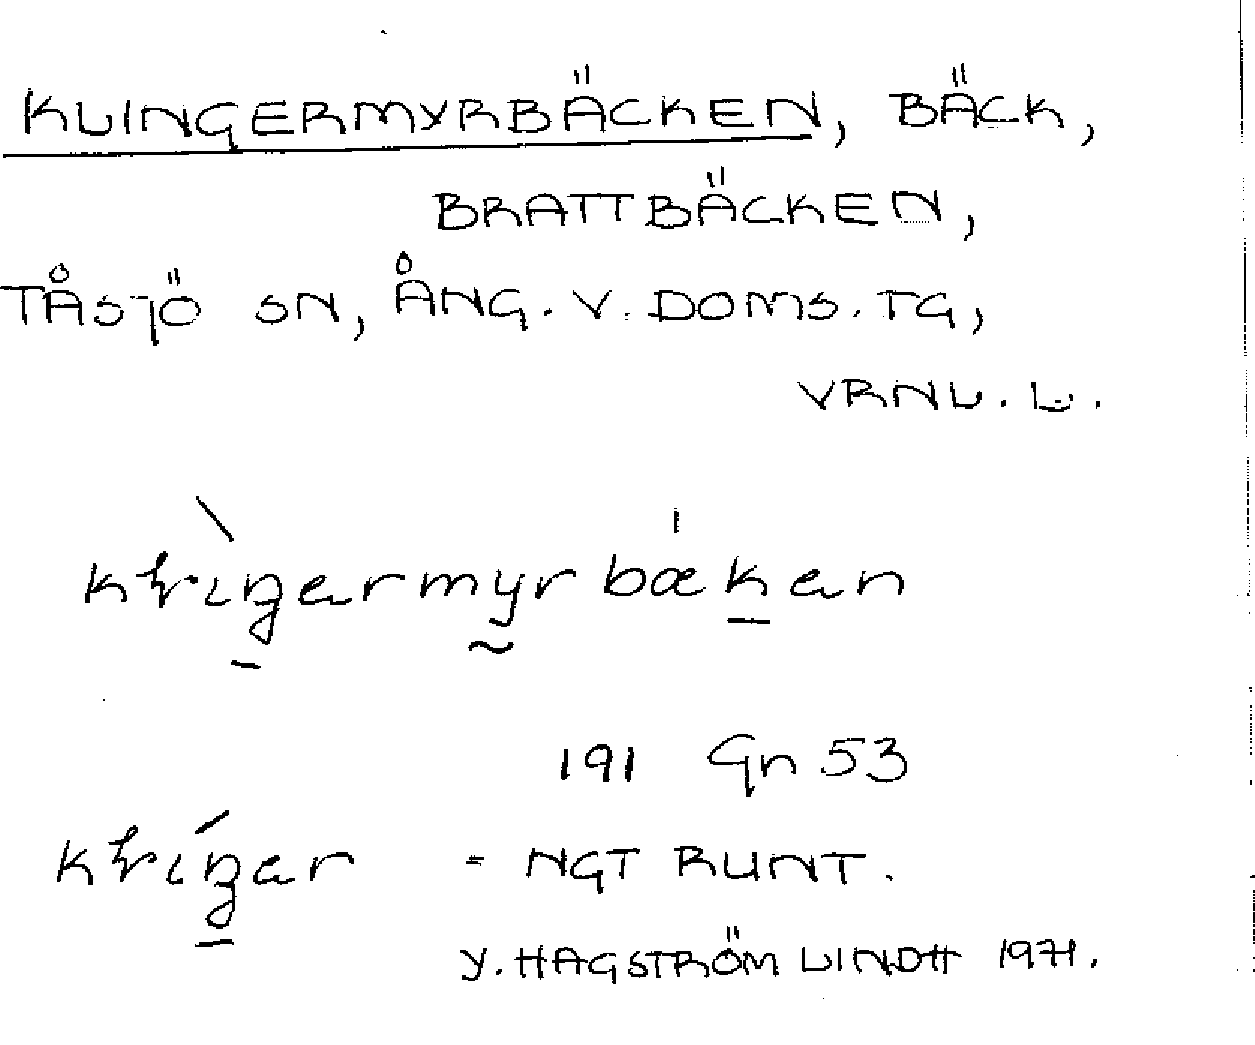 KLINGERMYRBÄCKEN, BÄCK,
BRATTBÄCKEN,
TÅSJÖ SN, ÅNG. V. DOMS. TG,
VRNL. L.
191 Gn 53
= NGT RUNT.
Y. HAGSTRÖM LINDH 1971.